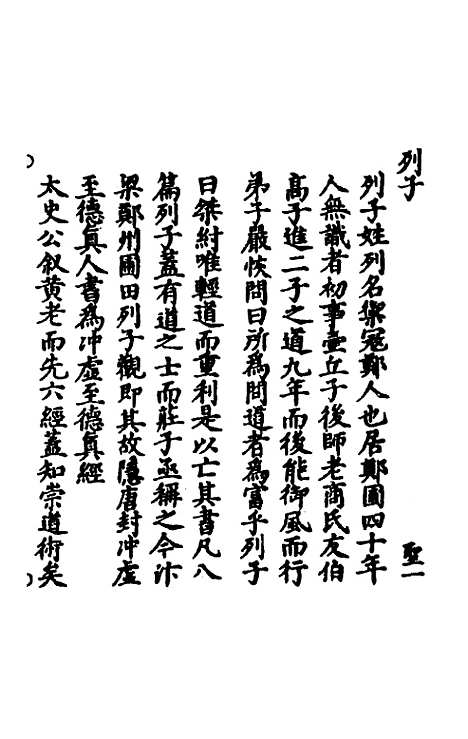 列子 聖一
列子姓列名禦寇鄭人也居鄭圃四十年
人無識者初事壷丘子後師老商氏友伯
高子進二子之道九年而後能御風而行
弟子嚴恢問曰所爲問道者爲富乎列子
曰桀紂唯輕道而重利是以亡其書凡八
篇列子蓋有道之士而莊子亟稱之今汴
梁鄭州圃田列子觀即其故隱唐封冲虛
至德眞人書爲冲虛至德眞經
太史公叙黄老而先六經蓋知崇道術矣